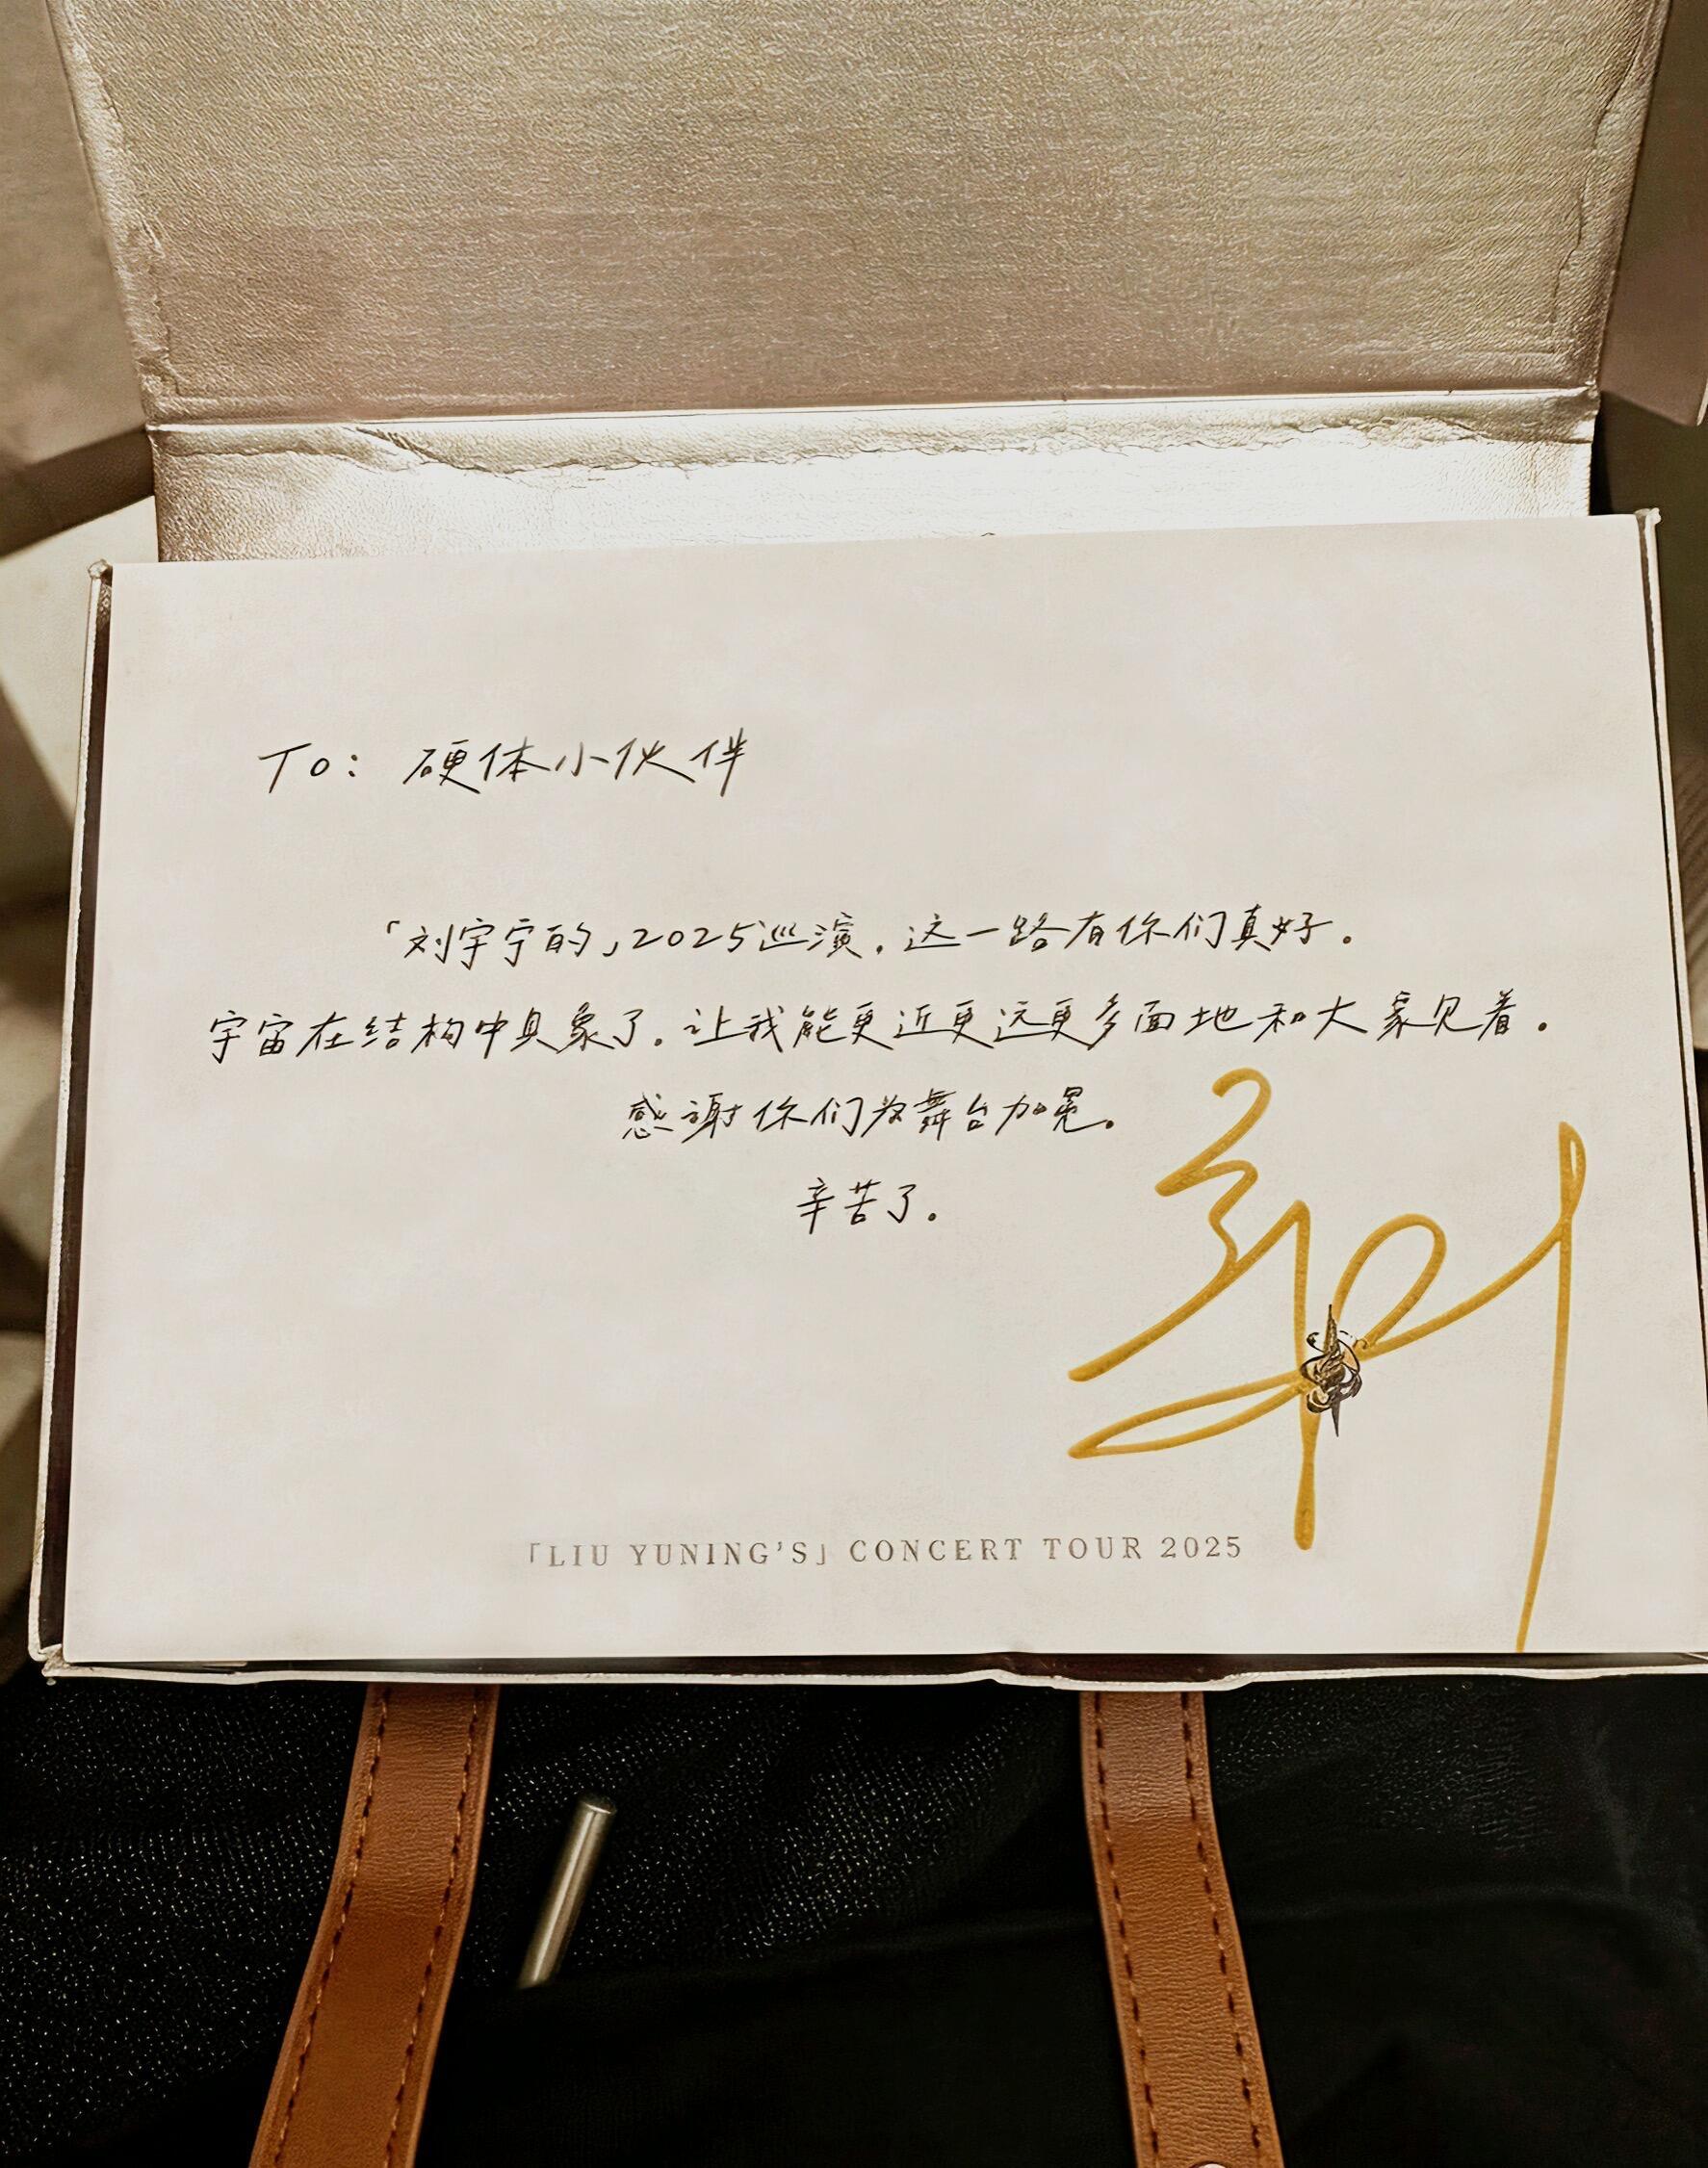 To: 硬体小伙伴
「刘宇宁的」2025巡演，这一路有你们真好。
宇宙在结构中具象了，让我能更近更远更多面地和大家见着。
感谢你们为舞台加冕。
辛苦了。
「LIU YUNING'S」 CONCERT TOUR 2025